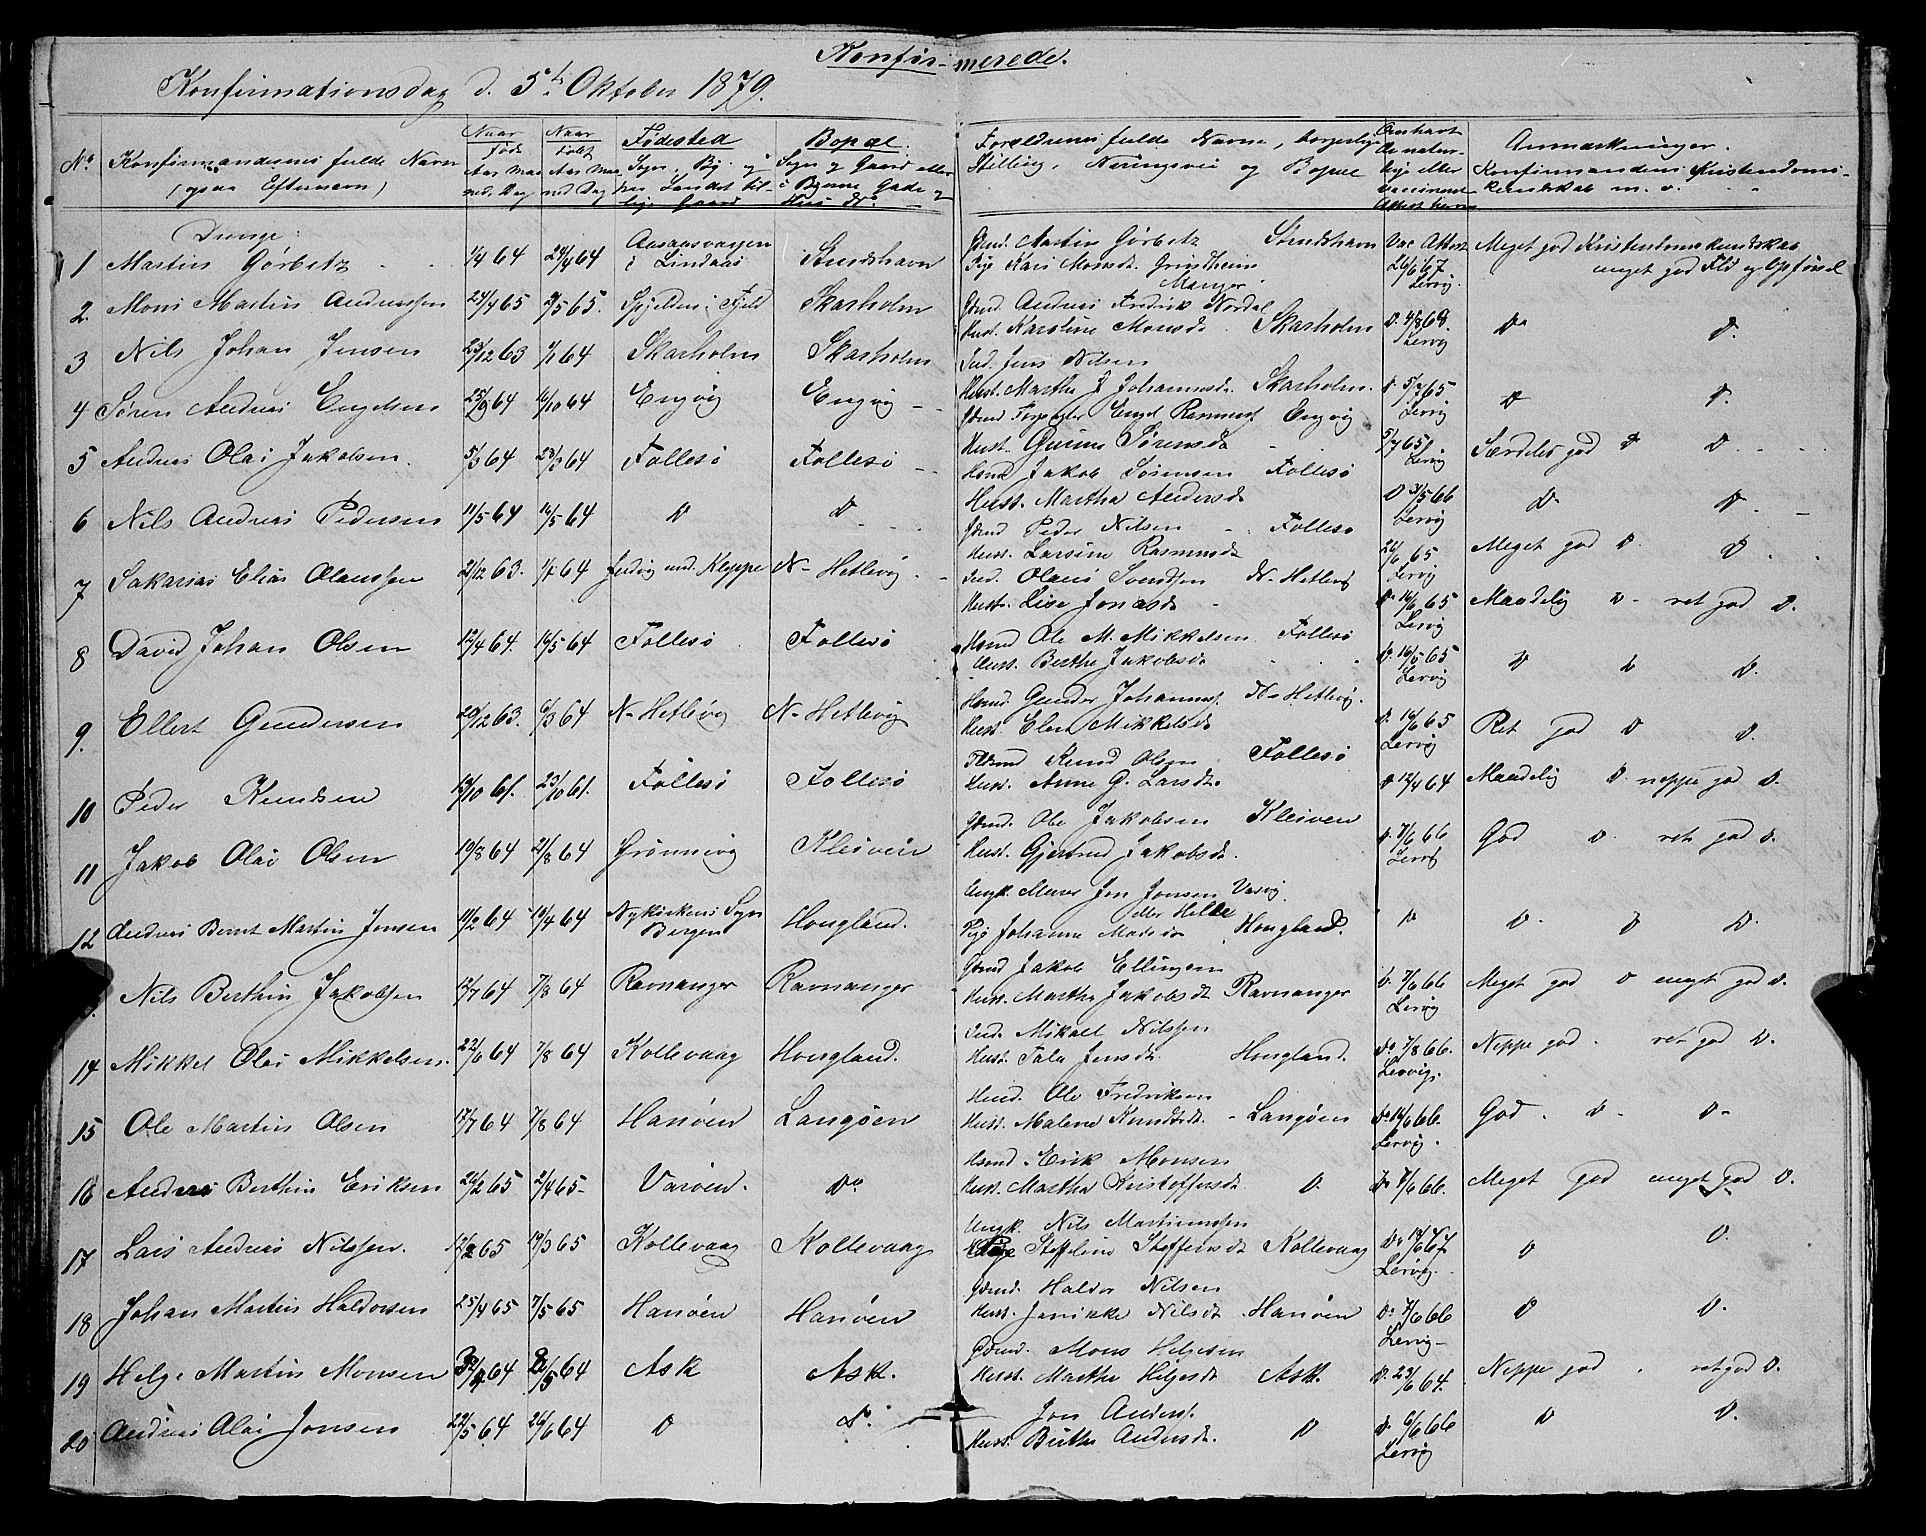 Konfirmerede.
Konfirmationsdag d. 5te Oktober 1879.
No Konfirmandernes fulde Navn (ogsaa Efternavn) Naar født Aar Maaned Dag Naar døbt Aar Maaned Dag Fødested Sogn, By og paa Landet tillige Gaard Bopæl. Sogn og Gaard eller i Byerne Gade og Hus No Forældrenes fulde Navne, borgerlige Stilling, Næringsvei og Bopæl Anmærkninger. Konfirmandens Kristendomskundskab m. v.
Drenge:
1 Martin Gørbitz 1/4 64 24/4 64 Aasaasvaagen i Lindaas Stureshavn Gmd. Martin Gørbitz Pige Kari Monsdt. Grindheim Manger Vac Attest 26/6 67 Lervig. Meget god Kristendomskundskab meget god Flid og Opførsel
2. Mons Martin Andersen 24/4 65 5/5 65. Spjelden i Fjeld Skarholm Gmd. Andreas Fredrik Nordal Hust. Karstine Monsdt. Skarholm Do 4/8 69. Lervig Do D.
3 Nils Johan Jensen 23/12 63 1/1 64 Skarholm Skarholm Ind. Jens Nilsen Hust. Marthe J Johannesdt. Skarholm. D. 5/7 65 Lervig D D.
4 Søren Andreas Engelsen 25/9 64 16/10 64 Engvig Engvig Gmd. Engel Rasmuss. Engvig Hust. Gurine Sørensdt 5/7 65 Lervig Særdeles god D D
5 Andreas Olai Jakobsen. 5/3 64 23/3 64 Follesø Follesø Hmd Jakob Sørensen Follesø Hust. Martha Andersdt D 31/5 66 Lervig D. D.
6 Nils Andreas Pedersen 11/5 64 16/5 64 D D. Gmd Peder Nilsen Follesø Hust. Larsine Rasmusdt 26/6 65 Lervig Meget god D. D.
7 Sakarias Elias Olaussen 21/12 63. 1/1 64 und. Kleppe N- Hetlevig Ind. Olaus Svendsen N- Hetlevig Hust. Lise Jonasdt Do 16/6 65 Lervig Maadelig D- ret god D.
8 David Johan Olsen 12/4 64. 16/5 64 Follesø Follesø Hmd Ole M. Mikkelsen Follesø Hust. Berthe Jakobsdt D. 16/5 65 Lervig D D D.
9. Ellert Gundersen 29/12 63. 6/3 64 N- Hetlevig N- Hetlevig Hmd. Gunder Johanness. N- Hetlevig. Hust. Elen Mikkelsdt D. 16/6 65 Lervig Ret god D D.
10 Peder Knudsen 12/10 61. 23/10 61. Follesø Follesø Knud Olsen Follesø Hust. Anne G. Larsdt. D 12/4 64 Maadelig D. neppe god D.
11 Jakob Olai Olsen 19/8 64 21/8 64 Grønnevig Kleiven Gmd. Ole Jakobsen Kleiven Hust. Gjertrud Jakobsdt. D. 7/6 66 Lervig God D. ret god D.
12 Andreas Bernt Martin Jensen 11/2 64 10/4 64 Nykirkens Sogn Bergen Hougland. Ungk. Murer Jon Jonsen Varvig eller Hilde Pige Johanne Madsdt Hougland. D D. D D.
Nils Berthin Jakobsen 12/7 64 7/8 64 Ravnanger Ravnanger Gmd Jakob Ellingsen Hust. Martha Jakobsdt Ravnanger D. 7/6 66 Lervig Meget god D meget god D.
14 Mikkel Olai Mikkelsen. 22/6 64 7/8 64 Kollevaag Hougland. Ind. Mikael Nilssen Hust. Tale Jensdt. Hougland. Do 7/8 66. Lervig. Neppe god. ret god D.
15 Ole Martin Olsen 17/7 64 7/8 64 Hanøen Langøen Hmd. Ole Fredriksen Hust. Malene Knudsdt. Langøen Do 16/6 66. Lervig. God. D- D-
16 Andreas Berthin Eriksen 26/2 65 2/4 65- Varøen. Do Hmd. Erik Monsen Hust. Martha Kristoffersdt D. Do 7/6 66. Meget god meget god D.
17 Lars Andreas Nilssen. 12/2 65 19/3 65 Kollevaag Kollevaag Ungk. Nils Martinussen Pige Steffeline Steffensdt Kollevaag Do 14/6 67 Lervig. D D.
18 Johan Martin Haldorsen 25/4 65 7/5 65 Hanøen Hanøen Gmd. Haldor Nilsen Hust. Jannikke Nilsdt. Hanøen Do 7/6 66 Lervig- D D.
19 Helge Martin Monsen /4 64 /5 64 Ask Ask. Gmd. Mons Helgesen Hust. Marthe Helgesdt Ask. D. 23/6 64. Neppe god. ret god D.
20 Andreas Olai Jonsen 22/5 64 26/6 64 D D. Jon Anderss. Hust. Birthe Andersdt. D D. 6/6 66 Lervig D D.